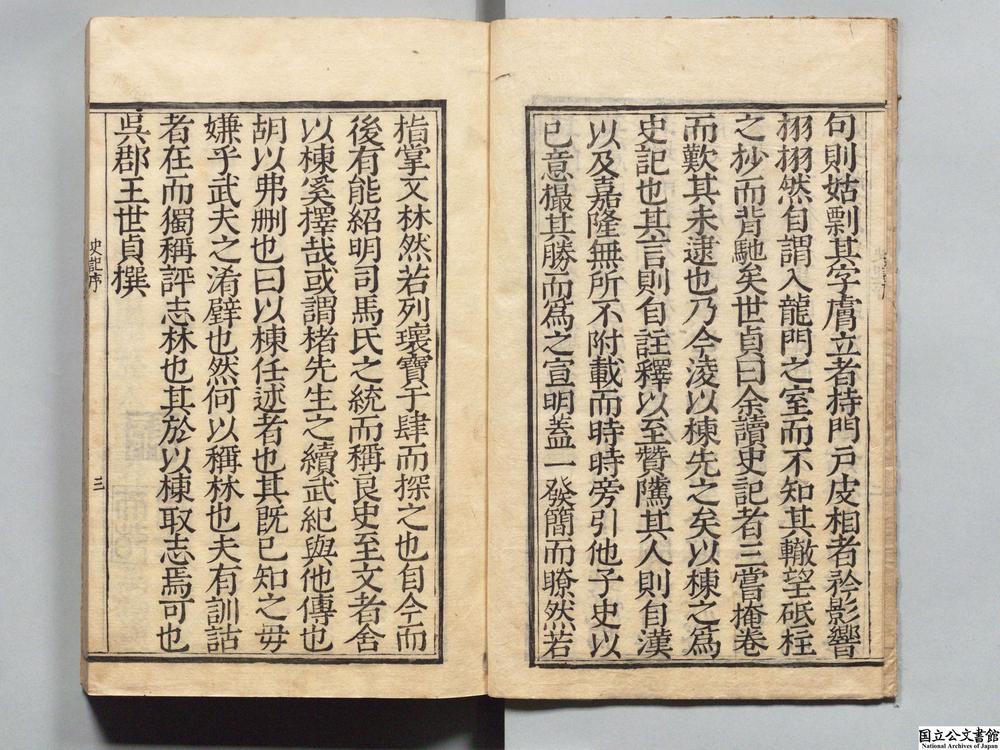 句則姑剽其字膚立者持門戸皮相者矜影響
栩栩然自謂入龍門之室而不知其轍望砥柱
之抄而背馳矣世貞曰余讀史記者三嘗掩卷
而歎其未逮也乃今淩以棟先之矣以棟之爲
史記也其言則自註釋以至贊隲其人則自漢
以及嘉隆無所不附載而時時旁引他子史以
已意撮其勝而爲之宣明蓋一發簡而瞭然若
指掌又林然若列瓌寶于肆而探之也自今而
後有能紹明司馬氏之統而稱良史至文者舍
以棟奚擇哉或謂楮先生之續武紀與他傳也
胡以弗刪也曰以棟任述者也其既已知之毋
嫌乎武夫之淆璧也然何以稱林也夫有訓詁
者在而獨稱評志林也其於以棟取志焉可也
吳郡王世貞撰
史記序
三
国立公文書館
National Archives of Japan